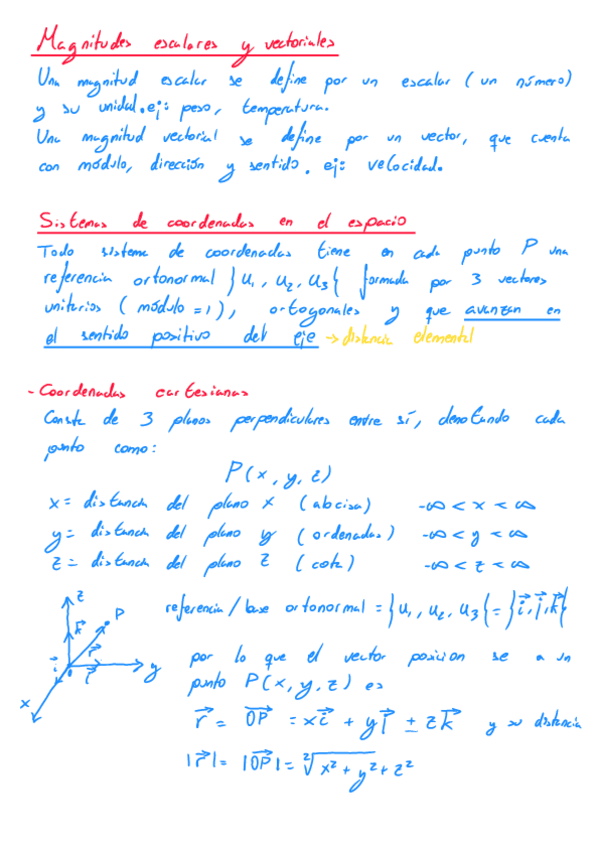 Magnitudes escalares y vectoriales
Una magnitud escalar se define por un escalar (un número)
y su unidad. ej: peso, temperatura.
Una magnitud vectorial se define por un vector, que cuenta
con módulo, dirección y sentido. ej: velocidad.
Sistemas de coordenadas en el espacio
Todo sistema de coordenadas tiene en cada punto P una
referencia ortonormal }u₁, u₂, u₃{ formada por 3 vectores
unitarios (módulo = 1), ortogonales y que avanzan en
el sentido positivo del eje → distancia elemental
- Coordenadas cartesianas
Consta de 3 planos perpendiculares entre sí, denotando cada
punto como:
P(x, y, z)
x = distancia del plano x (abcisa) -∞ < x < ∞
y = distancia del plano y (ordenadas) -∞ < y < ∞
z = distancia del plano z (cota) -∞ < z < ∞
referencia/base ortonormal = }u₁, u₂, u₃{ = }i⃗, j⃗, k⃗{
z
P
k⃗
r⃗
i⃗
j⃗
y
x
por lo que el vector posicion se a un
punto P(x, y, z) es
r⃗ = OP⃗ = xi⃗ + yj⃗ ± zk⃗ y su distancia
|r⃗| = |OP⃗| = ²√x² + y² + z²